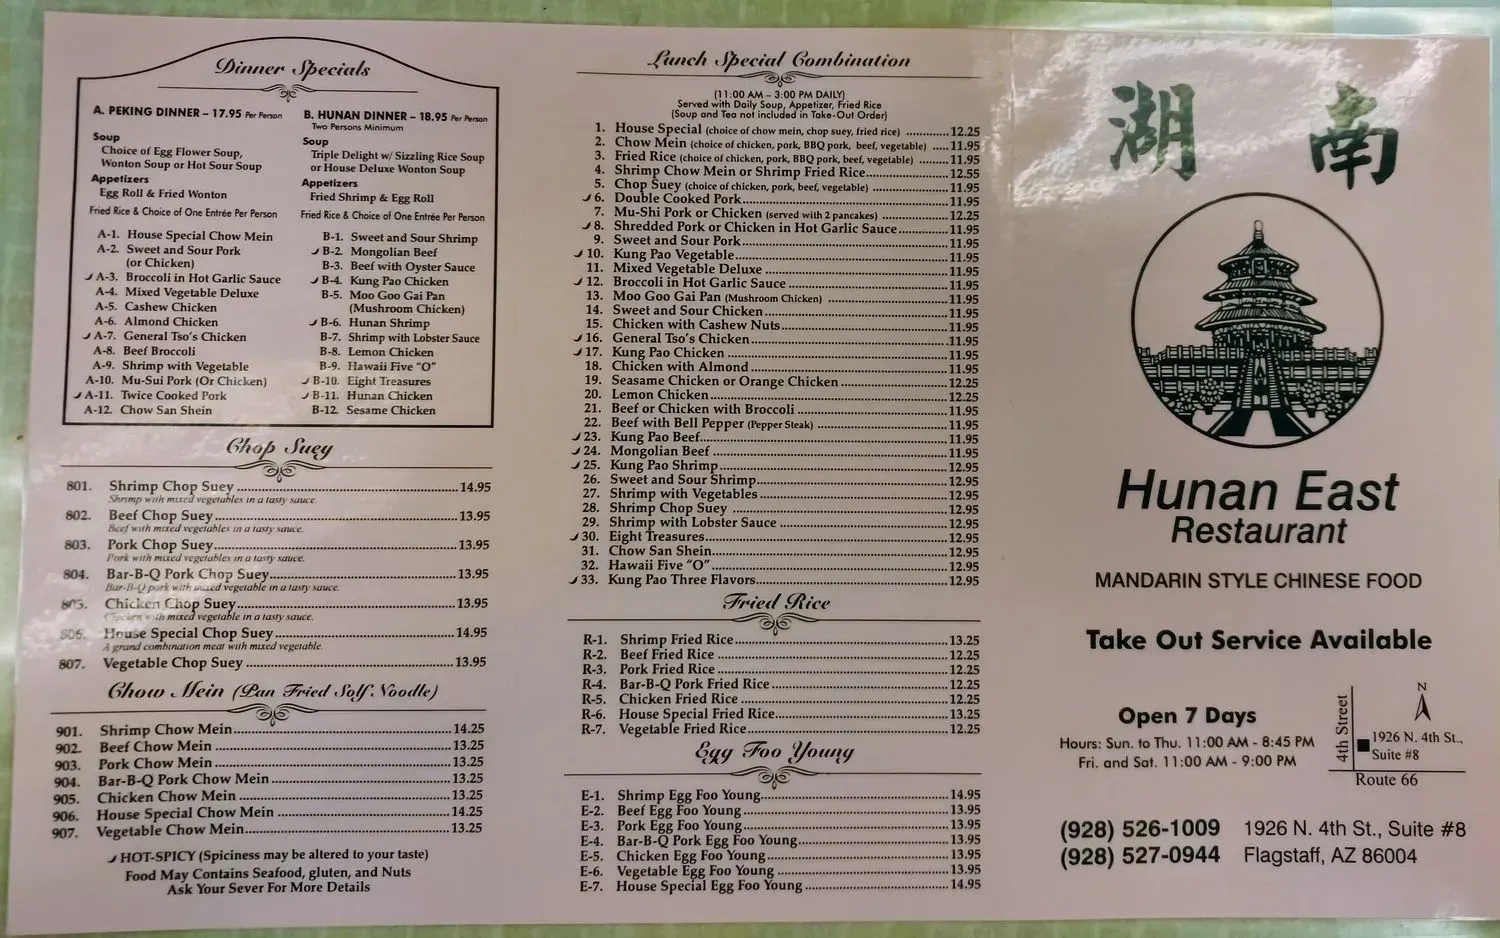 Dinner Specials
A. PEKING DINNER – 17.95 Per Person
Soup
Choice of Egg Flower Soup,
Wonton Soup or Hot Sour Soup
Appetizers
Egg Roll & Fried Wonton
Fried Rice & Choice of One Entrée Per Person
A-1. House Special Chow Mein
A-2. Sweet and Sour Pork
(or Chicken)
A-3. Broccoli in Hot Garlic Sauce
A-4. Mixed Vegetable Deluxe
A-5. Cashew Chicken
A-6. Almond Chicken
A-7. General Tso's Chicken
A-8. Beef Broccoli
A-9. Shrimp with Vegetable
A-10. Mu-Sui Pork (Or Chicken)
A-11. Twice Cooked Pork
A-12. Chow San Shein
B. HUNAN DINNER – 18.95 Per Person
Two Persons Minimum
Soup
Triple Delight w/ Sizzling Rice Soup
or House Deluxe Wonton Soup
Appetizers
Fried Shrimp & Egg Roll
Fried Rice & Choice of One Entrée Per Person
B-1. Sweet and Sour Shrimp
B-2. Mongolian Beef
B-3. Beef with Oyster Sauce
B-4. Kung Pao Chicken
B-5. Moo Goo Gai Pan
(Mushroom Chicken)
B-6. Hunan Shrimp
B-7. Shrimp with Lobster Sauce
B-8. Lemon Chicken
B-9. Hawaii Five "O"
B-10. Eight Treasures
B-11. Hunan Chicken
B-12. Sesame Chicken
Chop Suey
801. Shrimp Chop Suey 14.95
Shrimp with mixed vegetables in a tasty sauce.
802. Beef Chop Suey 13.95
Beef with mixed vegetables in a tasty sauce.
803. Pork Chop Suey 13.95
Pork with mixed vegetables in a tasty sauce.
804. Bar-B-Q Pork Chop Suey 13.95
Bar-B-Q pork with mixed vegetable in a tasty sauce.
805. Chicken Chop Suey 13.95
Chicken with mixed vegetables in a tasty sauce.
806. House Special Chop Suey 14.95
A grand combination meat with mixed vegetable.
807. Vegetable Chop Suey 13.95
Chow Mein (Pan Fried Solf. Noodle)
901. Shrimp Chow Mein 14.25
902. Beef Chow Mein 13.25
903. Pork Chow Mein 13.25
904. Bar-B-Q Pork Chow Mein 13.25
905. Chicken Chow Mein 13.25
906. House Special Chow Mein 14.25
907. Vegetable Chow Mein 13.25
HOT-SPICY (Spiciness may be altered to your taste)
Food May Contains Seafood, gluten, and Nuts
Ask Your Sever For More Details
Lunch Special Combination
(11:00 AM – 3:00 PM DAILY)
Served with Daily Soup, Appetizer, Fried Rice
(Soup and Tea not included in Take-Out Order)
1. House Special (choice of chow mein, chop suey, fried rice) 12.25
2. Chow Mein (choice of chicken, pork, BBQ pork, beef, vegetable) 11.95
3. Fried Rice (choice of chicken, pork, BBQ pork, beef, vegetable) 11.95
4. Shrimp Chow Mein or Shrimp Fried Rice 12.55
5. Chop Suey (choice of chicken, pork, beef, vegetable) 11.95
6. Double Cooked Pork 11.95
7. Mu-Shi Pork or Chicken (served with 2 pancakes) 12.25
8. Shredded Pork or Chicken in Hot Garlic Sauce 11.95
9. Sweet and Sour Pork 11.95
10. Kung Pao Vegetable 11.95
11. Mixed Vegetable Deluxe 11.95
12. Broccoli in Hot Garlic Sauce 11.95
13. Moo Goo Gai Pan (Mushroom Chicken) 11.95
14. Sweet and Sour Chicken 11.95
15. Chicken with Cashew Nuts 11.95
16. General Tso's Chicken 11.95
17. Kung Pao Chicken 11.95
18. Chicken with Almond 11.95
19. Seasame Chicken or Orange Chicken 12.25
20. Lemon Chicken 12.25
21. Beef or Chicken with Broccoli 11.95
22. Beef with Bell Pepper (Pepper Steak) 11.95
23. Kung Pao Beef 11.95
24. Mongolian Beef 11.95
25. Kung Pao Shrimp 12.95
26. Sweet and Sour Shrimp 12.95
27. Shrimp with Vegetables 12.95
28. Shrimp Chop Suey 12.95
29. Shrimp with Lobster Sauce 12.95
30. Eight Treasures 12.95
31. Chow San Shein 12.95
32. Hawaii Five "O" 12.95
33. Kung Pao Three Flavors 12.95
Fried Rice
R-1. Shrimp Fried Rice 13.25
R-2. Beef Fried Rice 12.25
R-3. Pork Fried Rice 12.25
R-4. Bar-B-Q Pork Fried Rice 12.25
R-5. Chicken Fried Rice 12.25
R-6. House Special Fried Rice 13.25
R-7. Vegetable Fried Rice 12.25
Egg Foo Young
E-1. Shrimp Egg Foo Young 14.95
E-2. Beef Egg Foo Young 13.95
E-3. Pork Egg Foo Young 13.95
E-4. Bar-B-Q Pork Egg Foo Young 13.95
E-5. Chicken Egg Foo Young 13.95
E-6. Vegetable Egg Foo Young 13.95
E-7. House Special Egg Foo Young 14.95
湖 南
Hunan East
Restaurant
MANDARIN STYLE CHINESE FOOD
Take Out Service Available
Open 7 Days
Hours: Sun. to Thu. 11:00 AM - 8:45 PM
Fri. and Sat. 11:00 AM - 9:00 PM
4th Street
N
1926 N. 4th St.,
Suite #8
Route 66
(928) 526-1009
(928) 527-0944
1926 N. 4th St., Suite #8
Flagstaff, AZ 86004